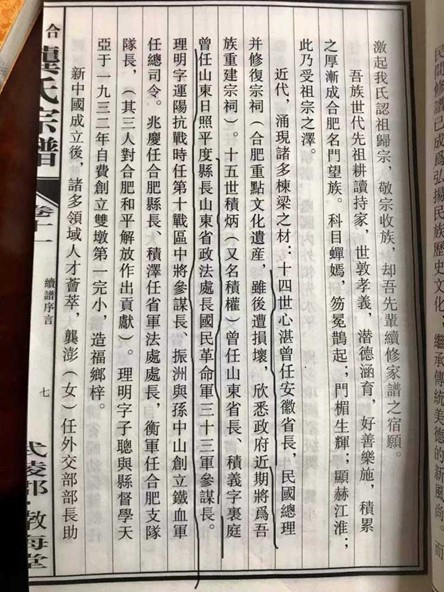 激起我氏認祖歸宗，敬宗收族，却吾先輩續修家譜之宿願。
吾族世代先祖耕讀持家，世敦孝義，潜德涵育，好善樂施，積累
之厚漸成合肥名門望族。科目蟬嫣，笏冕鵲起；門楣生輝；顯赫江淮；
此乃受祖宗之澤。
近代，涌現諸多棟梁之材：十四世心湛曾任安徽省長，民國總理
并修復宗祠（合肥重點文化遺産，雖後遭損壞，欣悉政府近期將爲吾
族重建宗祠）。十五世積炳（又名積權）曾任山東省長、積義字裏庭
曾任山東日照平度縣長山東省政法處長國民革命軍三十三軍參謀長。
理明字運陽抗戰時任第十戰區中將參謀長、振洲與孫中山創立鐵血軍
任總司令。兆慶任合肥縣長、積澤任省軍法處處長，衡軍任合肥支隊
隊長，（其三人對合肥和平解放作出貢獻）。理明字子聰與縣督學天
亞于一九三二年自費創立雙墩第一完小，造福鄉梓。
新中國成立後，諸多領域人才薈萃，龔澎（女）任外交部部長助
合 龔氏宗譜 卷十一 續譜序言 七 武陵郡 敦海堂